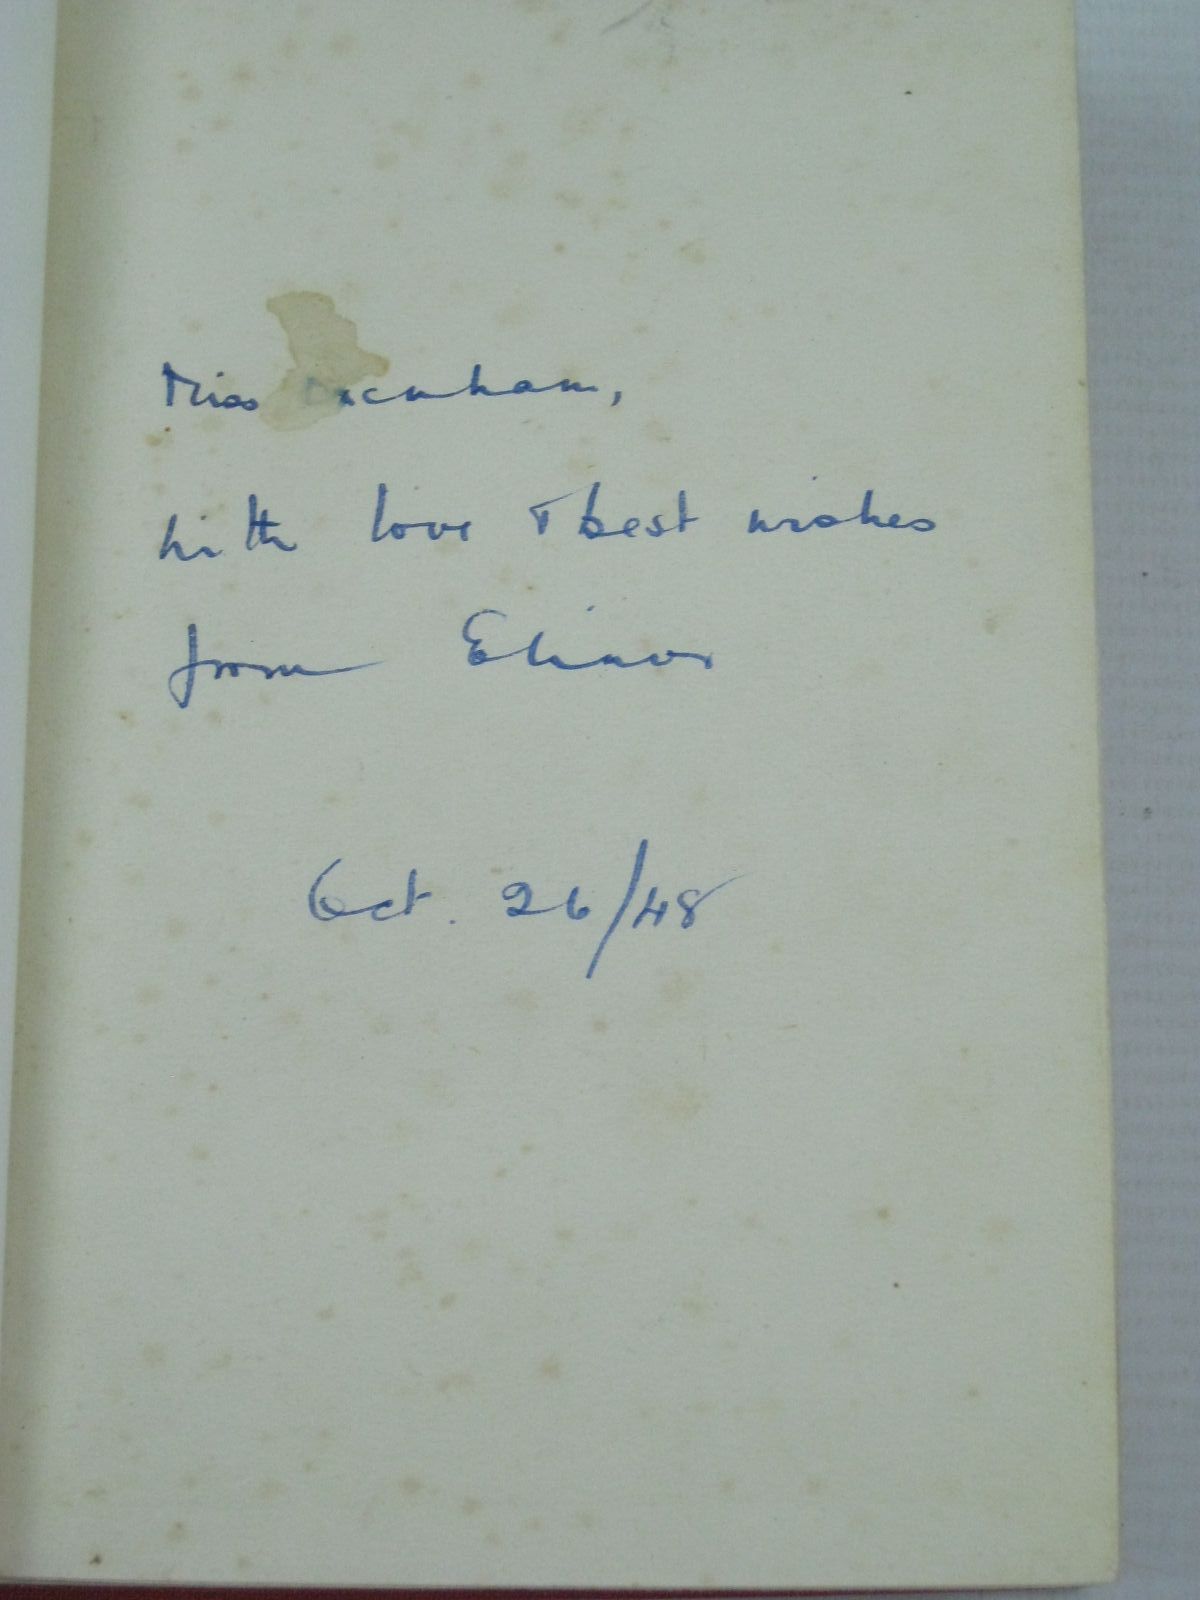 Miss
with love & best wishes
from Elinor
Oct. 26/48